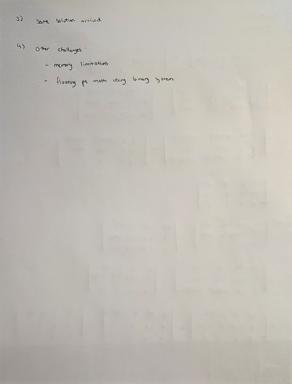 3) Same solution arrived
4) Other challenges
- memory limitations
- floating pt math using binary system